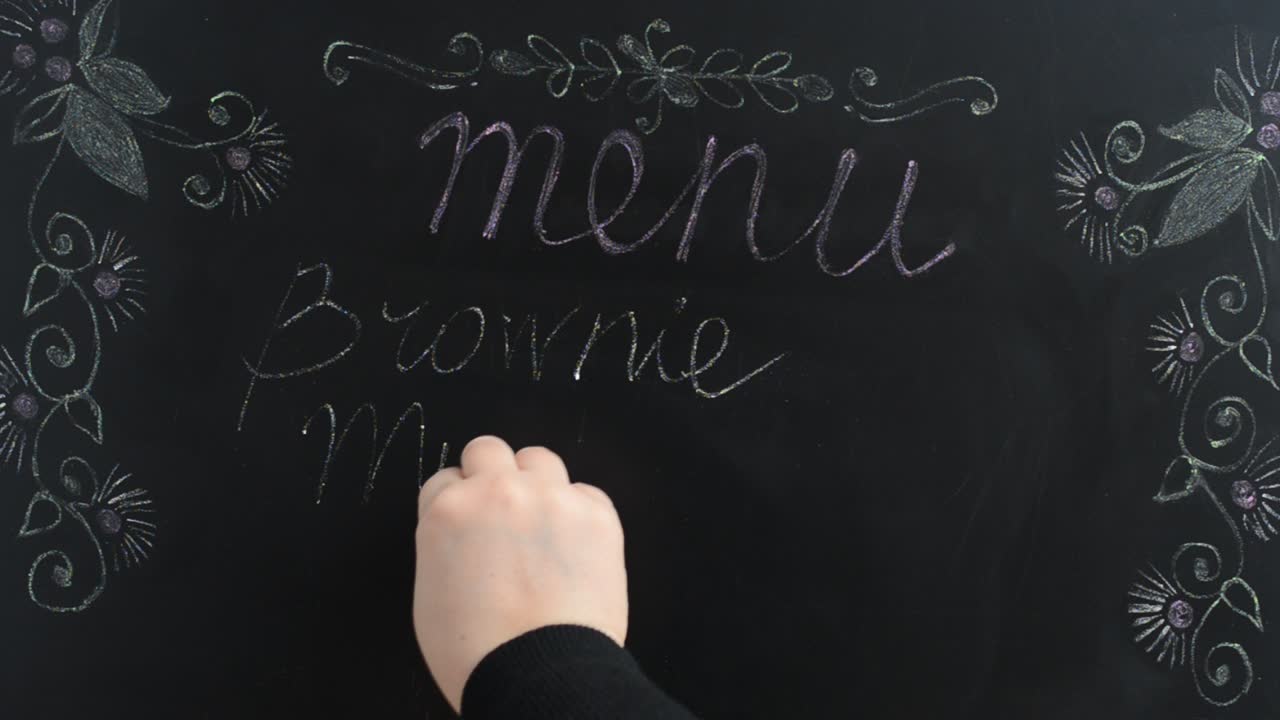 menu
Brownie
M